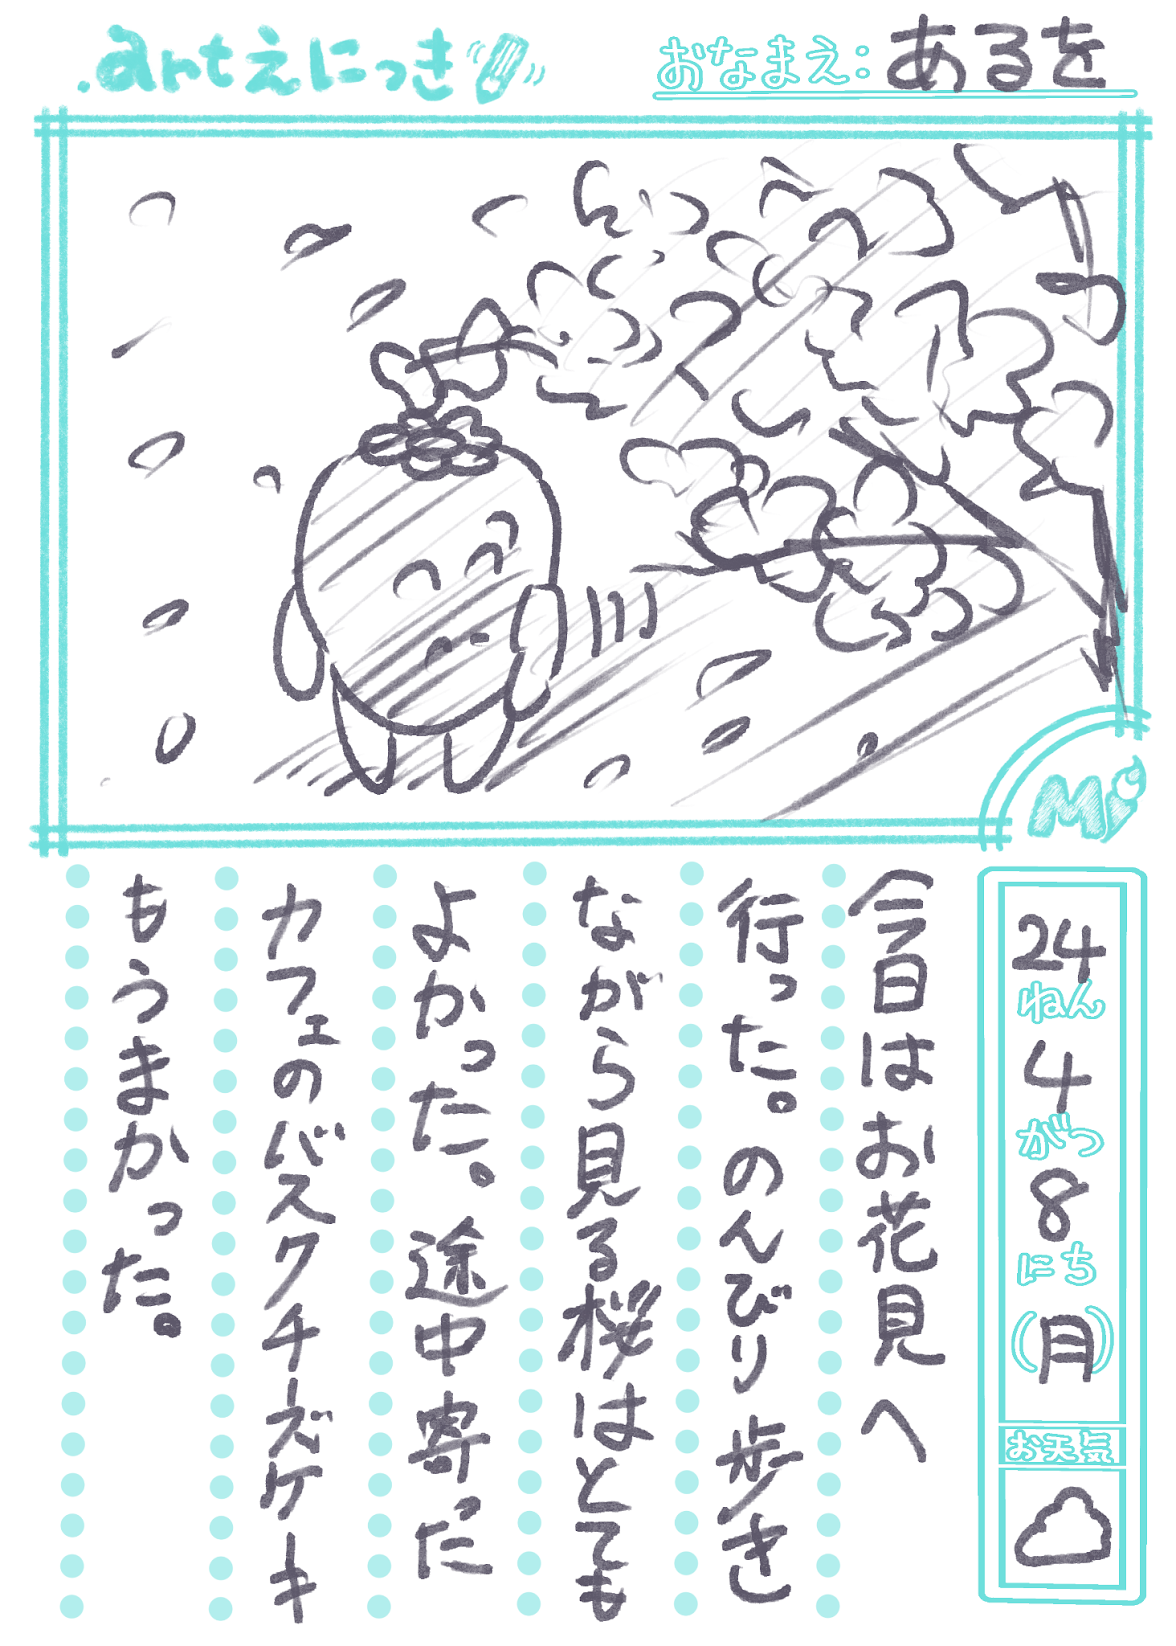 .artえにっき
おなまえ:あるを
Mi
24ねん4がつ8にち(月)
お天気
今日はお花見へ
行った。のんびり歩き
ながら見る桜はとても
よかった。途中寄った
カフェのバスクチーズケーキ
もうまかった。